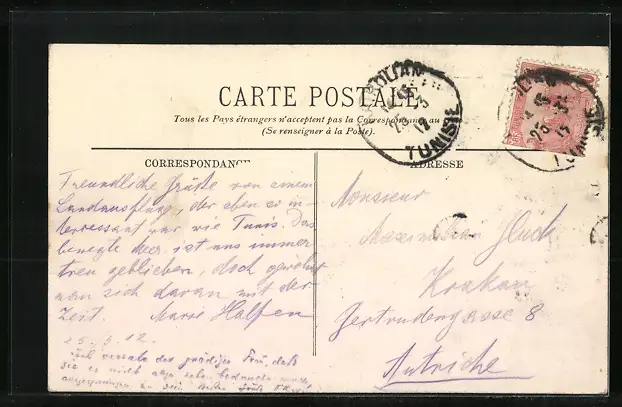 CARTE POSTALE
Tous les Pays étrangers n'acceptent pas la Correspondance au
(Se renseigner à la Poste).
TUNISIE
25 3 12
CORRESPONDANC
ADRESSE
Freundliche Grüße von einem
Landausflug, der eben so in-
teressant war wie Tunis. Das
bewegte Meer ist uns immer
treu geblieben, doch gewöhnt
man sich daran mit der
Zeit. Marie Halpern
25.3.12.
Monsieur
Maximilian Glück
Krakau
Gertrudengasse 8
Autriche